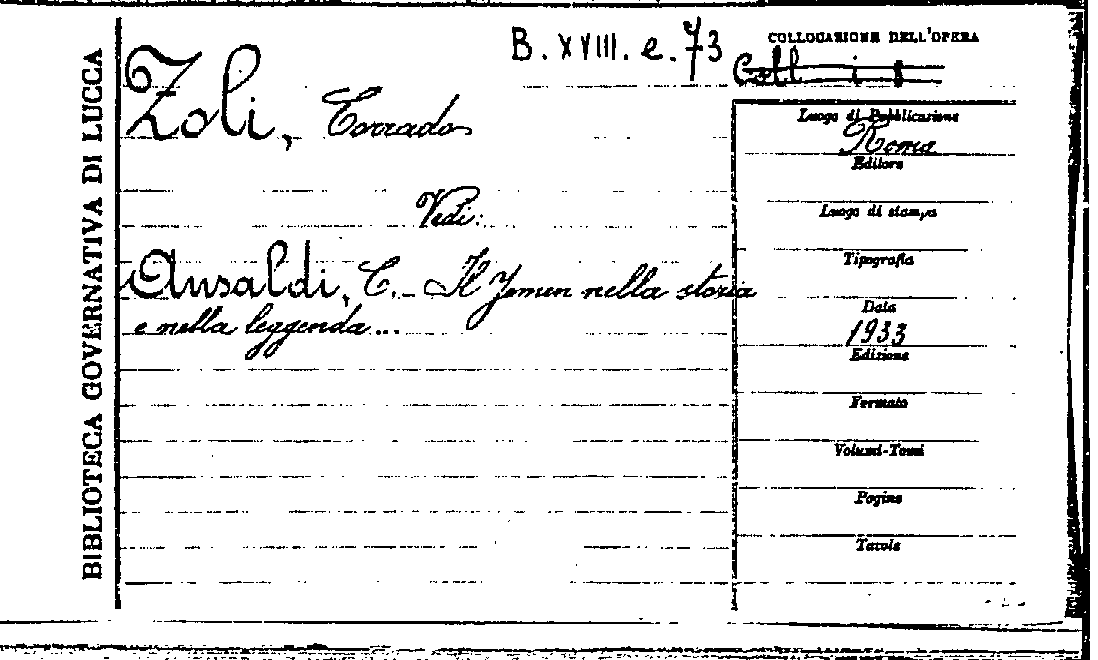 BIBLIOTECA GOVERNATIVA DI LUCCA
B. XVIII. e. 73
COLLOCAZIONE DELL'OPERA
Coll i 8
Zoli, Corrado
Vedi:
Ansaldi, C. - Il Jemen nella storia
e nella leggenda...
Luogo di Pubblicazione
Roma
Editore
Luogo di stampa
Tipografia
Data
1933
Edizione
Formato
Volumi-Tomi
Pagine
Tavole